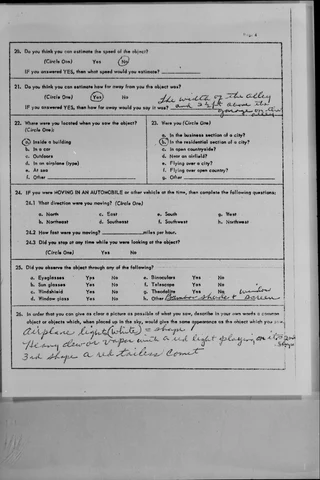 20. Do you think you can estimate the speed of the object?
(Circle One) Yes No
IF you answered YES, then what speed would you estimate?
21. Do you think you can estimate how far away from you the object was?
(Circle One) Yes No The width of the alley
IF you answered YES, then how far away would you say it was? and 2½ ft above the
garage on the
alley
22. Where were you located when you saw the object?
(Circle One):
a. Inside a building
b. In a car
c. Outdoors
d. In an airplane (type)
e. At sea
f. Other
23. Were you (Circle One)
a. In the business section of a city?
b. In the residential section of a city?
c. In open countryside?
d. Near an airfield?
e. Flying over a city?
f. Flying over open country?
g. Other
24. IF you were MOVING IN AN AUTOMOBILE or other vehicle at the time, then complete the following questions:
24.1 What direction were you moving? (Circle One)
a. North c. East e. South g. West
b. Northeast d. Southeast f. Southwest h. Northwest
24.2 How fast were you moving? miles per hour.
24.3 Did you stop at any time while you were looking at the object?
(Circle One) Yes No
25. Did you observe the object through any of the following?
a. Eyeglasses Yes No e. Binoculars Yes No
b. Sun glasses Yes No f. Telescope Yes No
c. Windshield Yes No g. Theodolite Yes No window
d. Window glass Yes No h. Other Bamboo shade & screen
26. In order that you can give as clear a picture as possible of what you saw, describe in your own words a common
object or objects which, when placed up in the sky, would give the same appearance as the object which you saw.
Airplane light (white) = shape 1
Heavy dew or vapor with a red light playing on it = 2nd
shape
3rd shape a red tailless comet